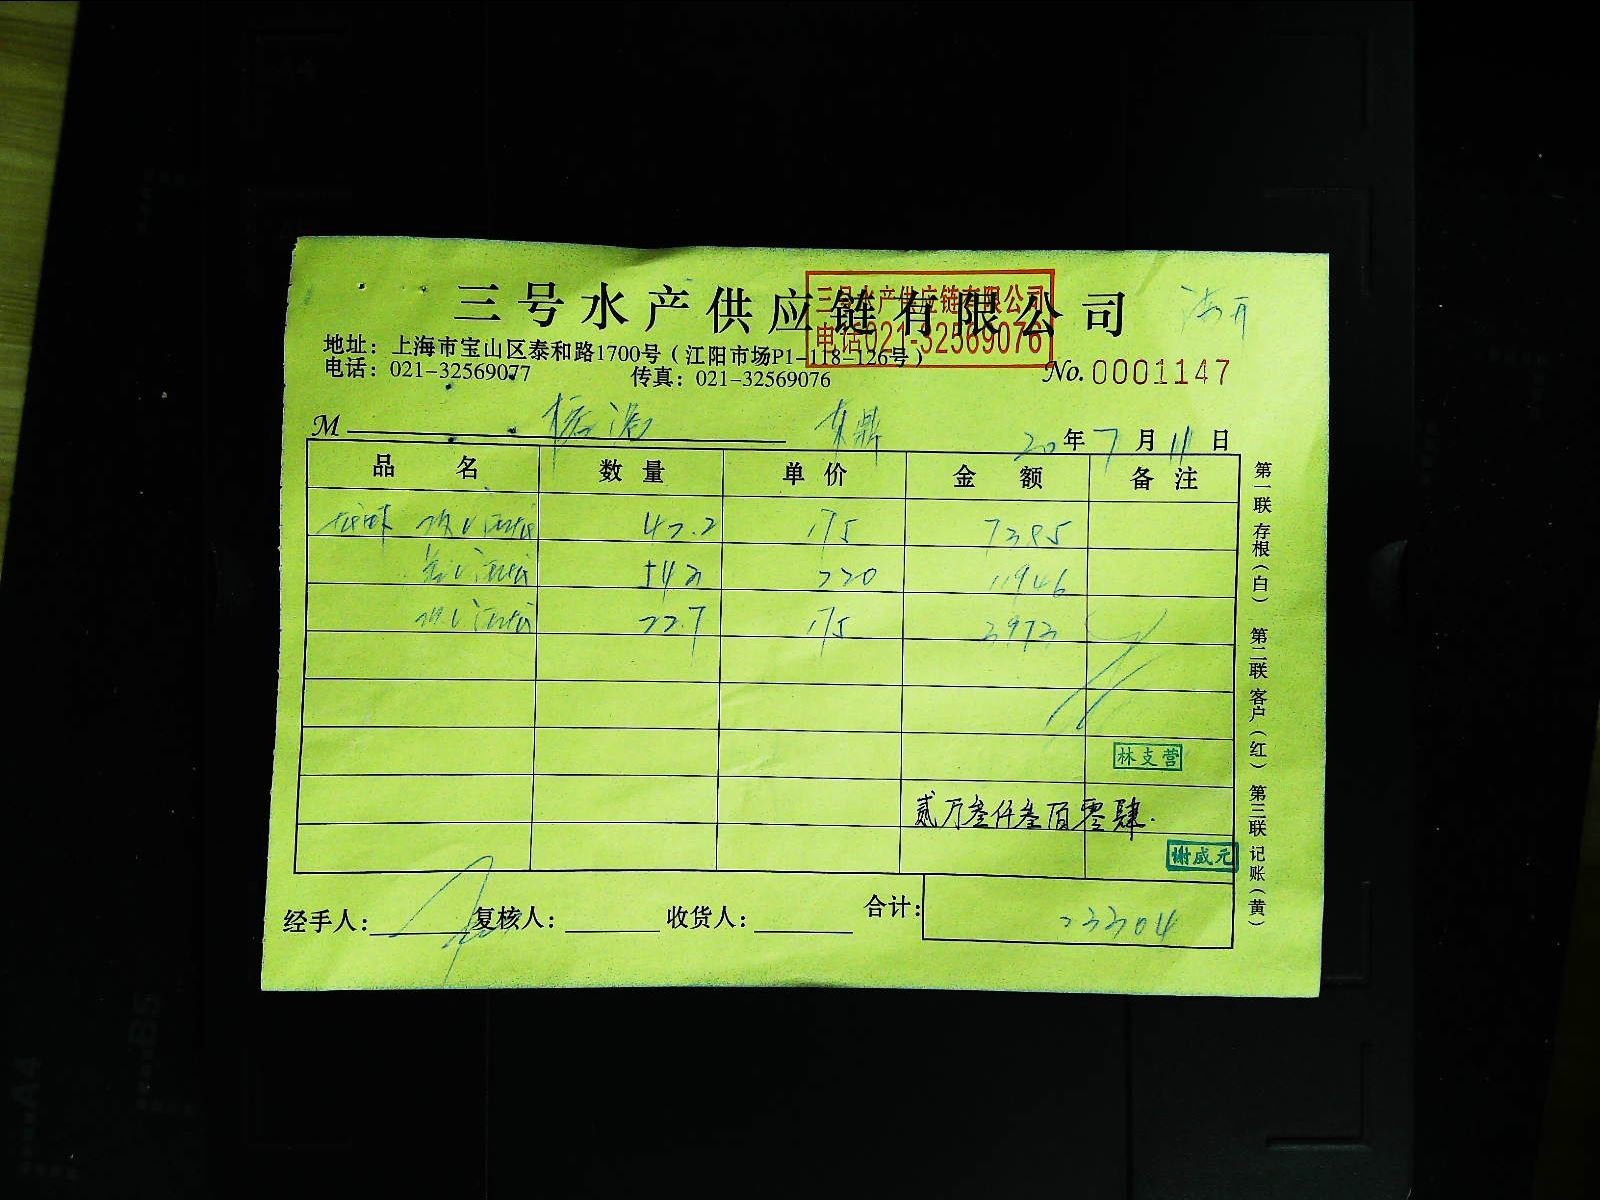 三号水产供应链有限公司
三号水产供应链有限公司
电话021-32569076
地址：上海市宝山区泰和路1700号（江阳市场P1-118-126号）
电话：021-32569077 传真：021-32569076
No. 0001147
M
东鼎
20年7月11日
品名 数量 单价 金额 备注
175
220 11946
22.7 175 3973
林支营
贰万叁仟叁佰零肆.
谢成元
经手人： 复核人： 收货人： 合计： 23304
第一联 存根（白） 第二联 客户（红） 第三联 记账（黄）